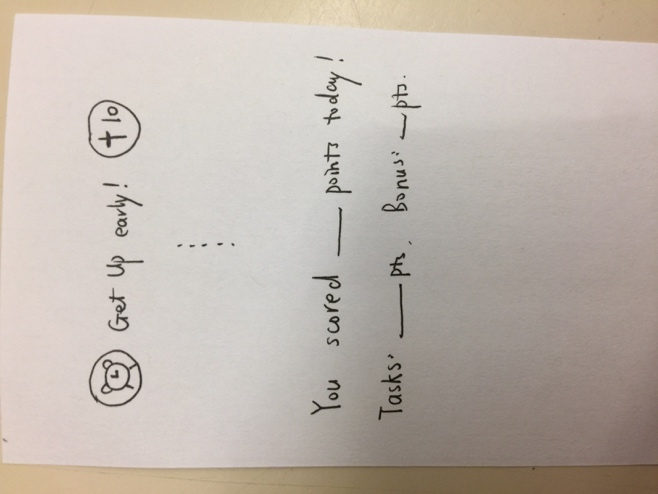 Get Up early! +10
You scored ___ points today!
Tasks: ___ pts. Bonus: __ pts.